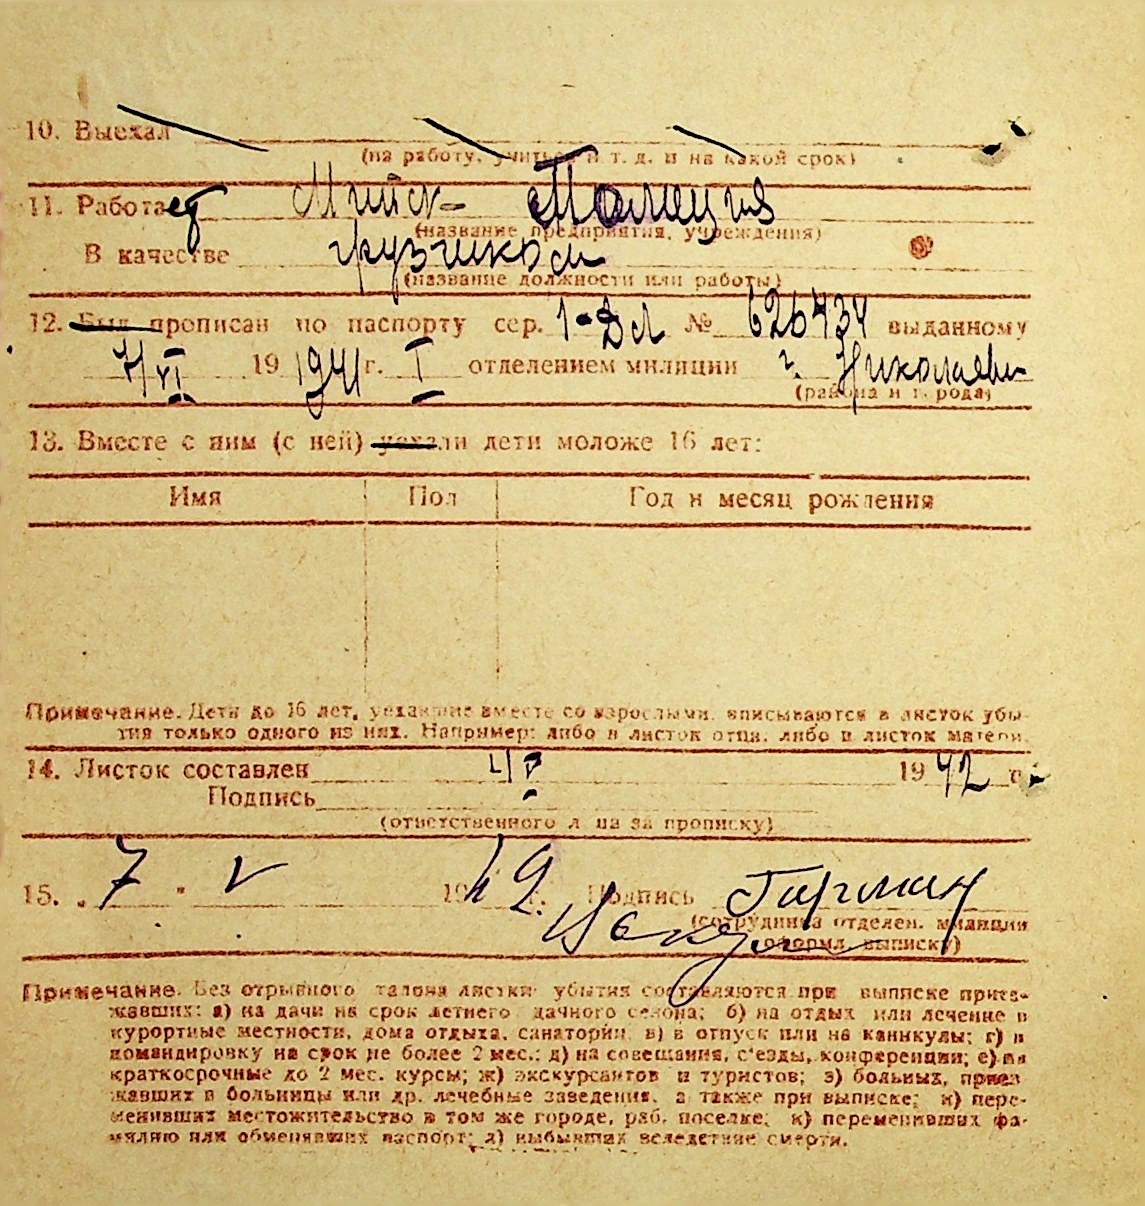 10. Выехал
(на работу, учиться и т. д. и на какой срок)
11. Работает
(название предприятия, учреждения)
В качестве грузчиком
(название должности или работы)
12. Был прописан по паспорту сер. № 626434 выданному
7/VI 19 1941 г. I отделением милиции г. Николаева
(района и города)
13. Вместе с ним (с ней) уехали дети моложе 16 лет:
Имя Пол Год и месяц рождения
Примечание. Дети до 16 лет, уехавшие вместе со взрослыми, вписываются в листок убы-
тия только одного из них. Например: либо в листок отца, либо в листок матери.
14. Листок составлен 4/V 19 42 г.
Подпись
(ответственного лица за прописку)
15. „7 " V 1942. Подпись
(сотрудника отделен. милиции
оформл. выписку)
Примечание. Без отрывного талона листки убытия составляются при выписке приез-
жавших: а) на дачи на срок летнего дачного сезона; б) на отдых или лечение в
курортные местности, дома отдыха, санатории; в) в отпуск или на каникулы; г) в
командировку на срок не более 2 мес.; д) на совещания, с'езды, конференции; е) на
краткосрочные до 2 мес. курсы; ж) экскурсантов и туристов; з) больных, приез-
жавших в больницы или др. лечебные заведения, а также при выписке; и) пере-
менивших местожительство в том же городе, раб. поселке; к) переменивших фа-
милию или обменявших паспорт; л) выбывших вследствие смерти.